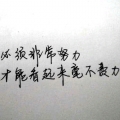 必须非常努力
才能看起来毫不费力